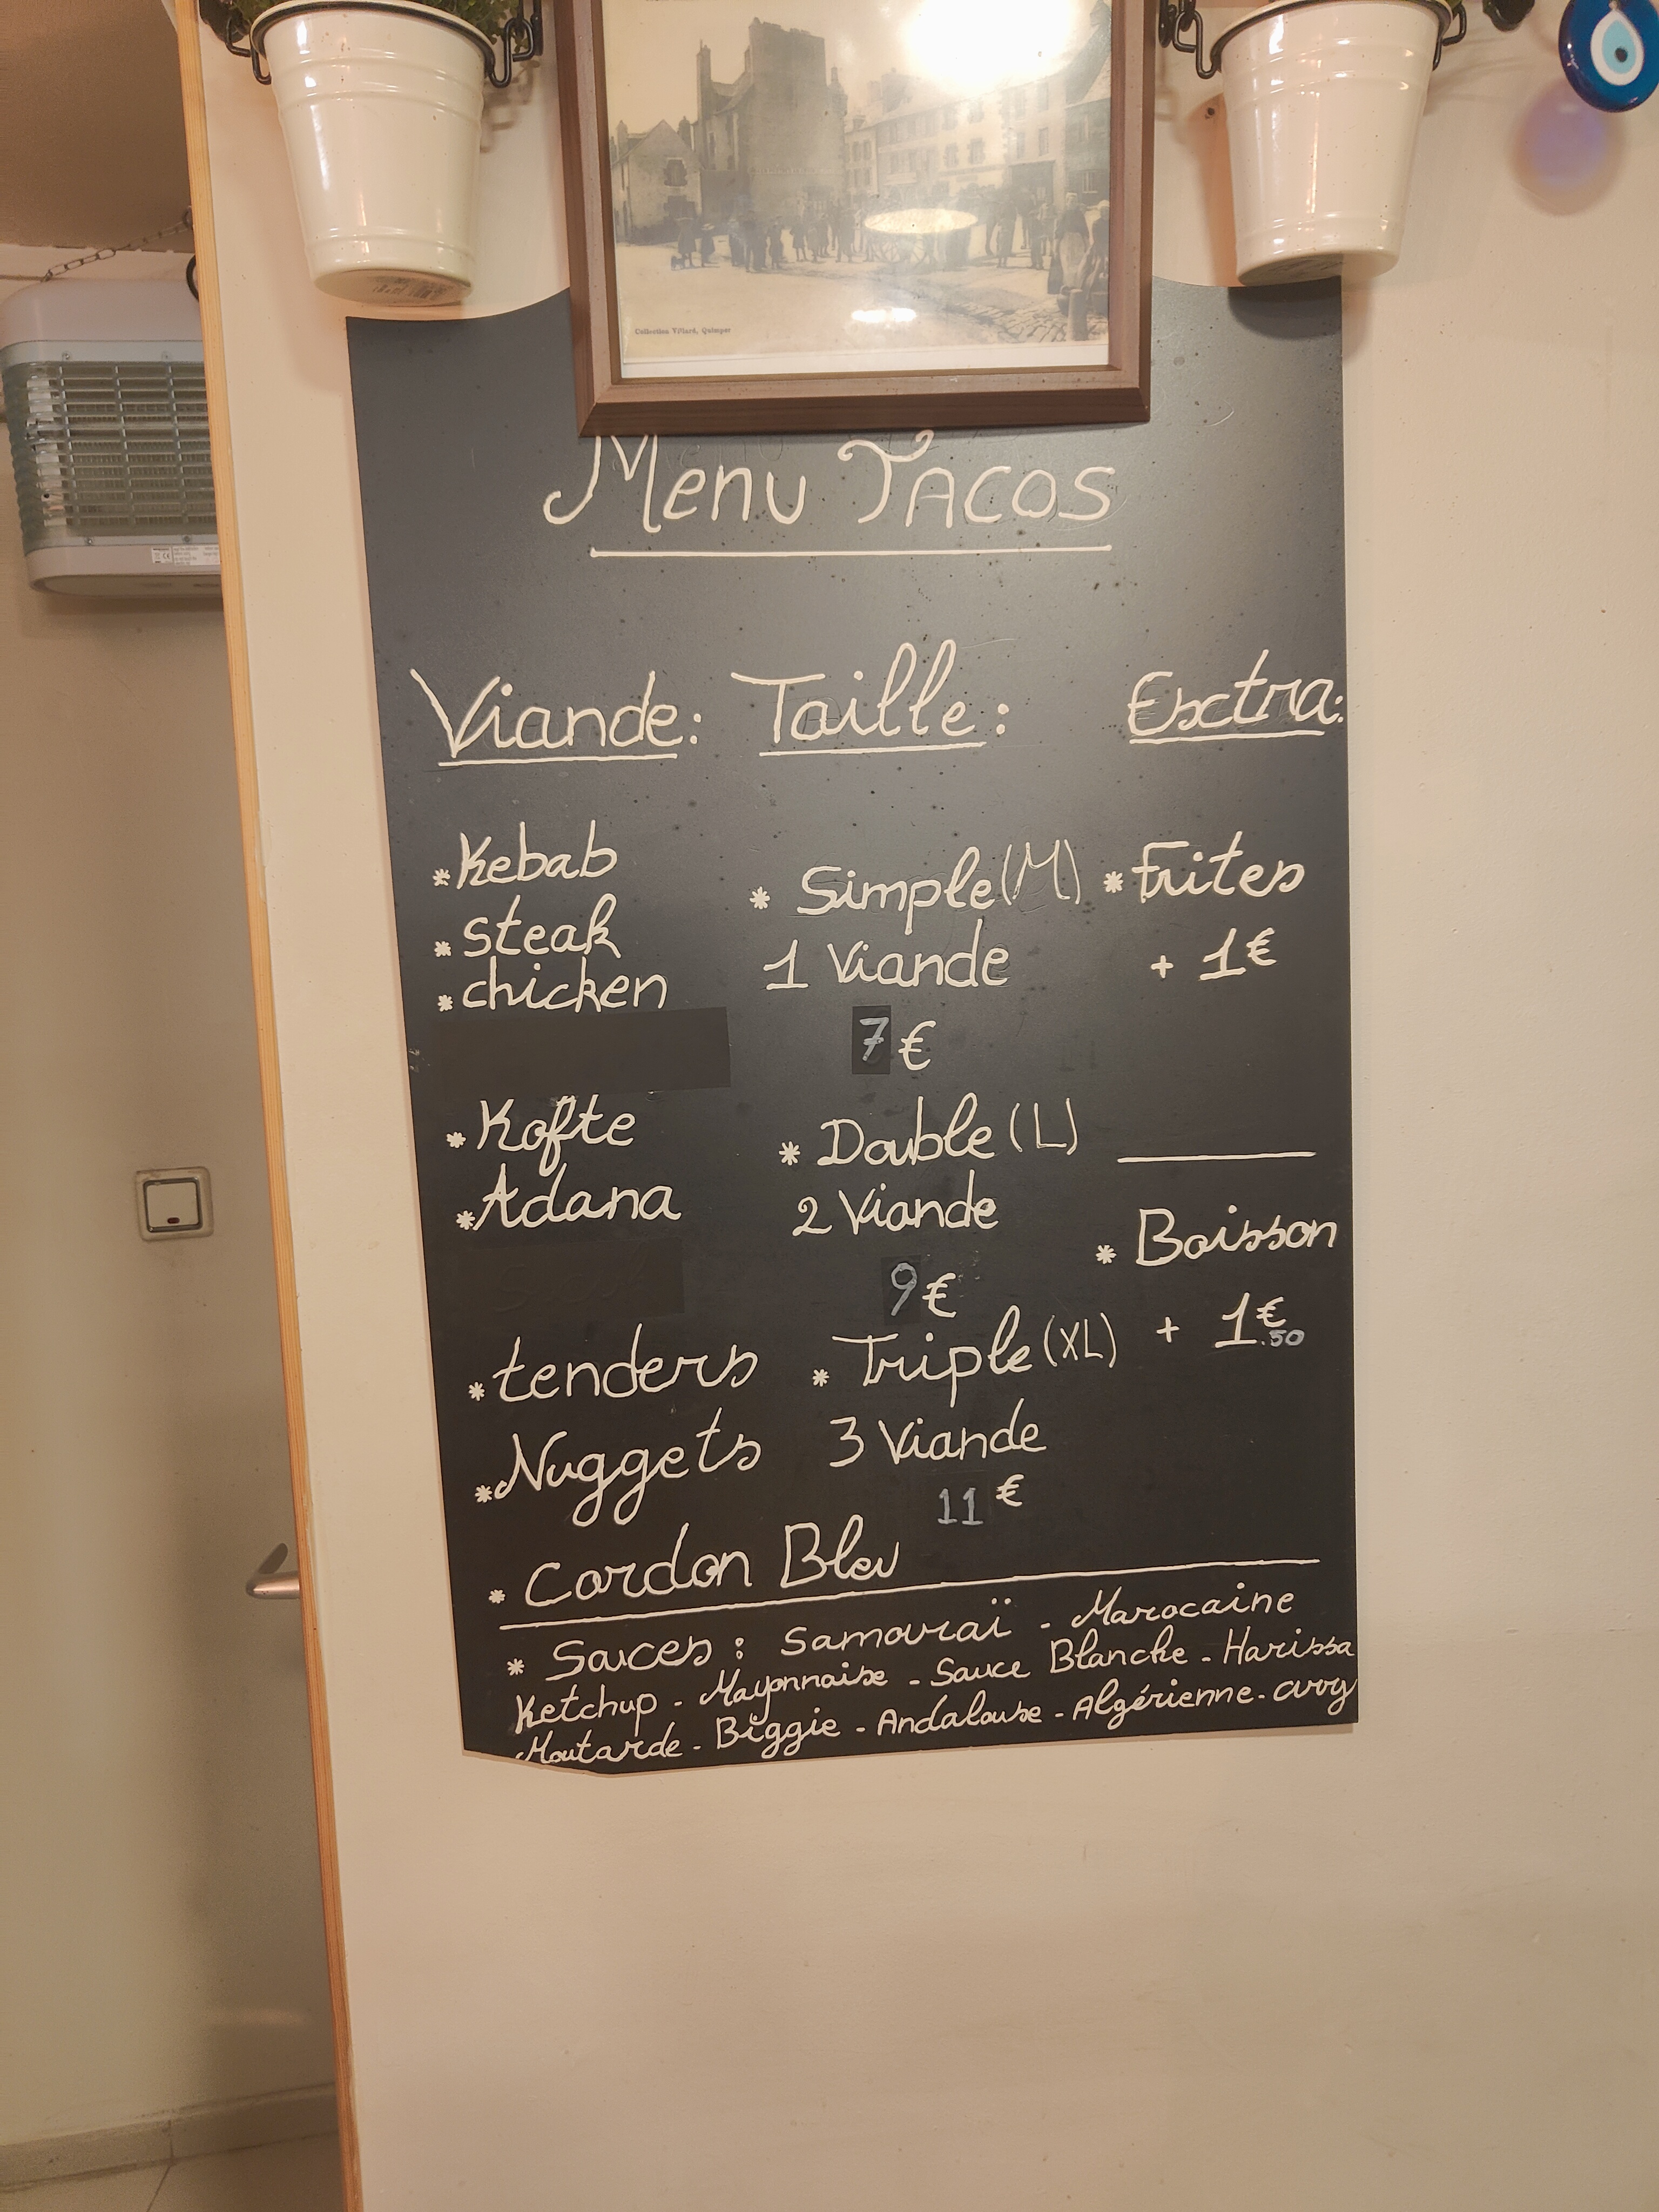 Collection Villard, Quimper
Menu Tacos
Viande:
* Kebab
* Steak
* chicken
* Kofte
* Adana
* tenders
* Nuggets
* Cordon Bleu
Taille:
* Simple (M)
1 Viande
7 €
* Double (L)
2 Viande
9 €
* Triple (XL)
3 Viande
11 €
Extra:
* Frites
+ 1 €
* Boisson
+ 1 €.50
* Sauces : Samouraï - Marocaine
Ketchup - Mayonnaise - Sauce Blanche - Harissa
Moutarde - Biggie - Andalouse - Algérienne - curry